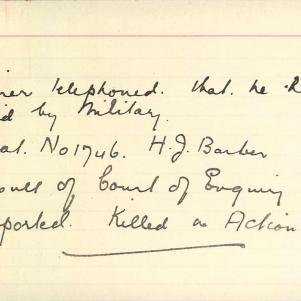 telephoned. that he
by Military.
No 1746. H.J. Barber
of Court of Enquiry
Killed in Action